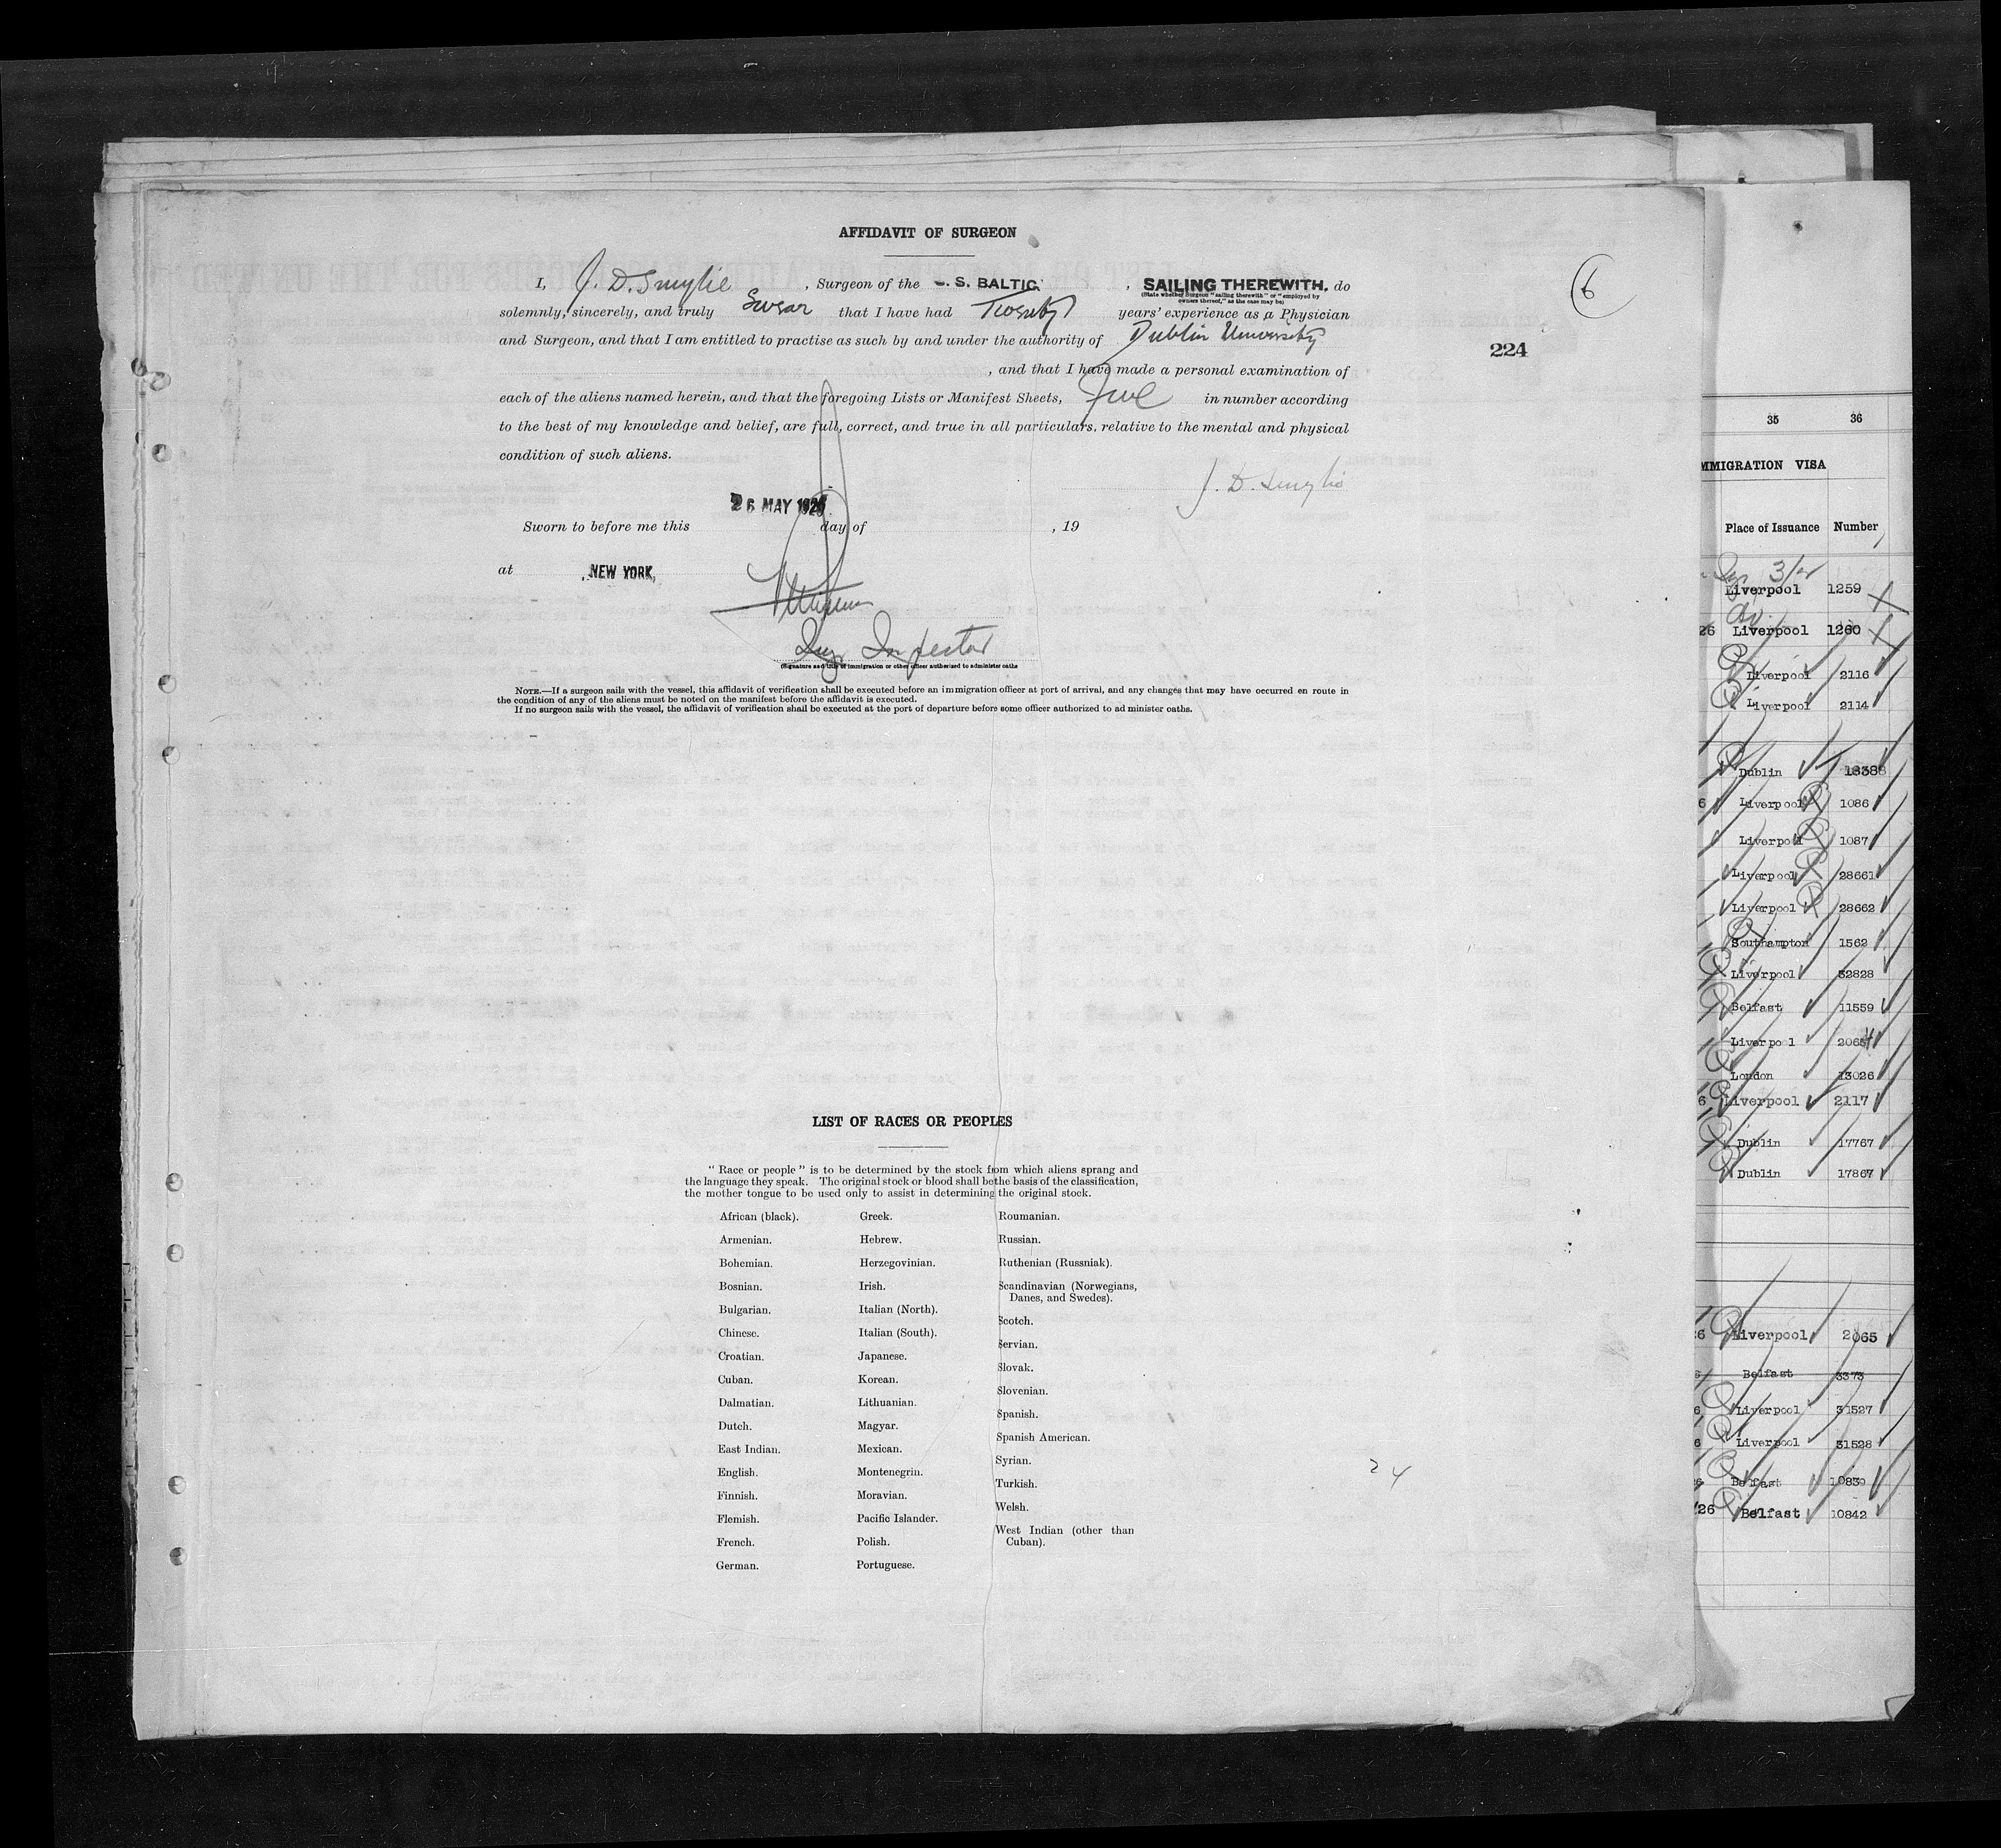 AFFIDAVIT OF SURGEON
I, J. D. Smylie, Surgeon of the S. S. BALTIC, SAILING THEREWITH, do
(State whether Surgeon "sailing therewith" or "employed by
owners thereof," as the case may be)
solemnly, sincerely, and truly Swear that I have had Twenty years' experience as a Physician
and Surgeon, and that I am entitled to practise as such by and under the authority of Dublin University
, and that I have made a personal examination of
each of the aliens named herein, and that the foregoing Lists or Manifest Sheets, Five in number according
to the best of my knowledge and belief, are full, correct, and true in all particulars, relative to the mental and physical
condition of such aliens.
J. D. Smylie
26 MAY 1926
Sworn to before me this day of , 19
at NEW YORK,
Inspector
(Signature and title of immigration or other officer authorized to administer oaths
NOTE.—If a surgeon sails with the vessel, this affidavit of verification shall be executed before an immigration officer at port of arrival, and any changes that may have occurred en route in
the condition of any of the aliens must be noted on the manifest before the affidavit is executed.
If no surgeon sails with the vessel, the affidavit of verification shall be executed at the port of departure before some officer authorized to administer oaths.
6
224
LIST OF RACES OR PEOPLES
"Race or people" is to be determined by the stock from which aliens sprang and
the language they speak. The original stock or blood shall be the basis of the classification,
the mother tongue to be used only to assist in determining the original stock.
African (black).
Armenian.
Bohemian.
Bosnian.
Bulgarian.
Chinese.
Croatian.
Cuban.
Dalmatian.
Dutch.
East Indian.
English.
Finnish.
Flemish.
French.
German.
Greek.
Hebrew.
Herzegovinian.
Irish.
Italian (North).
Italian (South).
Japanese.
Korean.
Lithuanian.
Magyar.
Mexican.
Montenegrin.
Moravian.
Pacific Islander.
Polish.
Portuguese.
Roumanian.
Russian.
Ruthenian (Russniak).
Scandinavian (Norwegians,
Danes, and Swedes).
Scotch.
Servian.
Slovak.
Slovenian.
Spanish.
Spanish American.
Syrian.
Turkish.
Welsh.
West Indian (other than
Cuban).
24
35 36
MMIGRATION VISA
Place of Issuance Number
Liverpool 1259
26 Liverpool 1260
Liverpool 2116
Liverpool 2114
Dublin 18388
6 Liverpool 1086
Liverpool 1087
Liverpool 28661
Liverpool 28662
Southampton 1562
Liverpool 32828
Belfast 11559
Liverpool 2064
London 13026
6 Liverpool 2117
Dublin 17767
Dublin 17867
26 Liverpool 2065
Belfast 3373
6 Liverpool 31527
6 Liverpool 31528
Belfast 10839
26 Belfast 10842